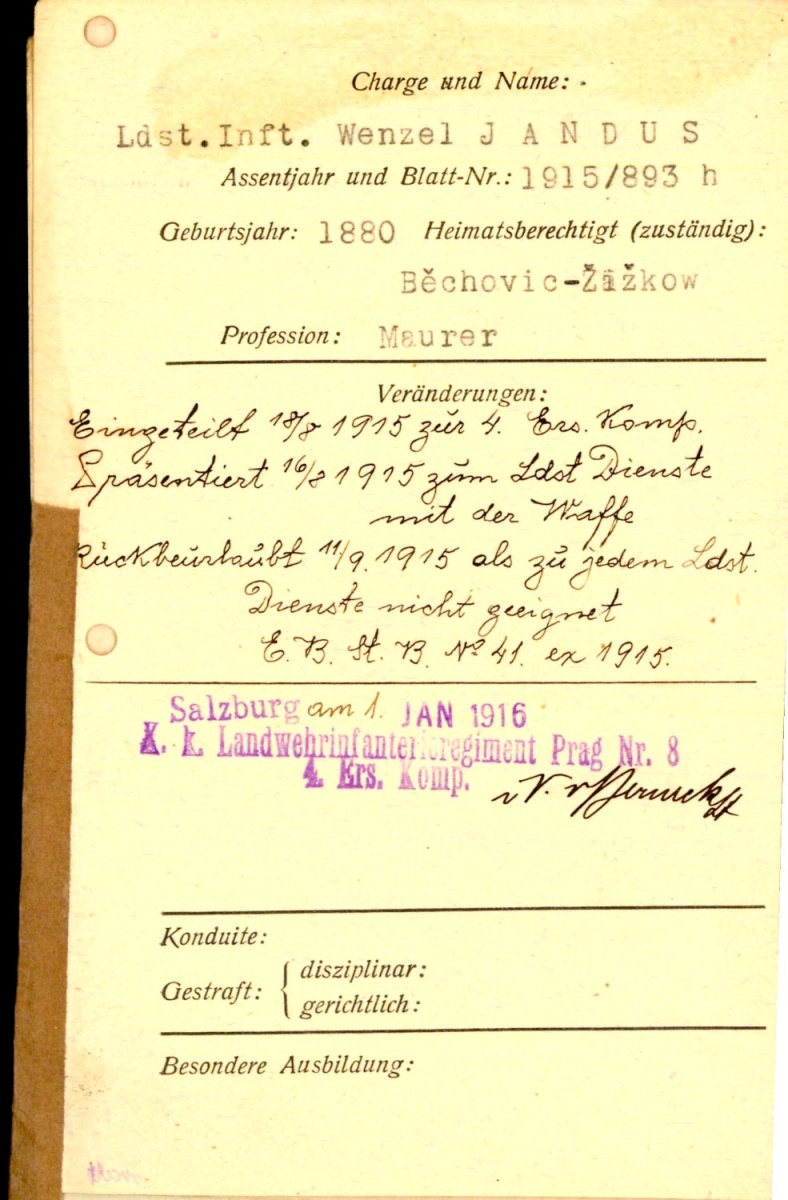 Charge und Name:
Ldst.Inft. Wenzel J A N D U S
Assentjahr und Blatt-Nr.: 1915/893 h
Geburtsjahr: 1880 Heimatsberechtigt (zuständig):
Běchovic-Žižkow
Profession: Maurer
Veränderungen:
Eingeteilt 18/8 1915 zur 4. Ers. Komp.
Präsentiert 16/8 1915 zum Ldst Dienste
mit der Waffe
Rückbeurlaubt 11/9. 1915 als zu jedem Ldst.
Dienste nicht geeignet
E. B. St. B. No 41. ex 1915.
Salzburg am 1. JAN 1916
K. k. Landwehrinfanterieregiment Prag Nr. 8
4. Ers. Komp.
Konduite:
Gestraft: { disziplinar:
gerichtlich:
Besondere Ausbildung: